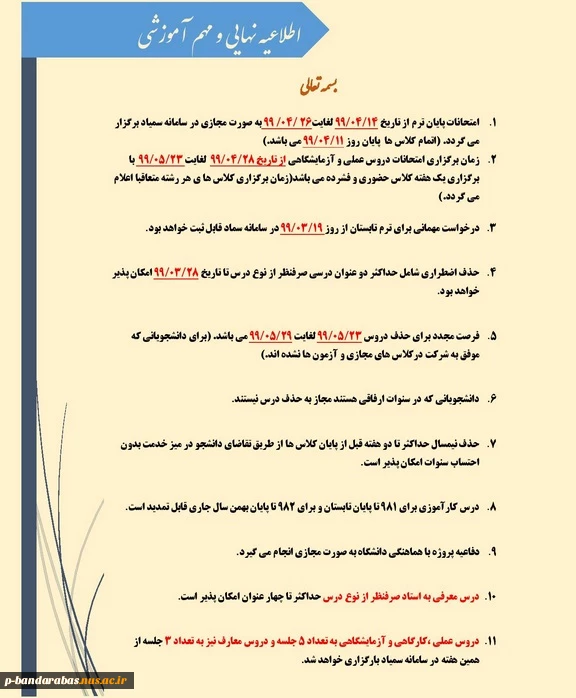 اطلاعیه نهایی و مهم آموزشی
بسمه تعالی
۱. امتحانات پایان ترم از تاریخ ۹۹/۰۴/۱۴ لغایت ۲۶ /۰۴/ ۹۹ به صورت مجازی در سامانه سمیاد برگزار
می گردد. (اتمام کلاس ها پایان روز ۹۹/۰۴/۱۱ می باشد.)
۲. زمان برگزاری امتحانات دروس عملی و آزمایشگاهی از تاریخ ۹۹/۰۴/۲۸ لغایت ۹۹/۰۵/۲۳ با
برگزاری یک هفته کلاس حضوری و فشرده می باشد(زمان برگزاری کلاس ها ی هر رشته متعاقبا اعلام
می گردد.)
۳. درخواست مهمانی برای ترم تابستان از روز ۹۹/۰۳/۱۹ در سامانه سماد قابل ثبت خواهد بود.
۴. حذف اضطراری شامل حداکثر دو عنوان درسی صرفنظر از نوع درس تا تاریخ ۹۹/۰۳/۲۸ امکان پذیر
خواهد بود.
۵. فرصت مجدد برای حذف دروس ۹۹/۰۵/۲۳ لغایت ۹۹/۰۵/۲۹ می باشد. (برای دانشجویانی که
موفق به شرکت درکلاس های مجازی و آزمون ها نشده اند.)
۶. دانشجویانی که در سنوات ارفاقی هستند مجاز به حذف درس نیستند.
۷. حذف نیمسال حداکثر تا دو هفته قبل از پایان کلاس ها از طریق تقاضای دانشجو در میز خدمت بدون
احتساب سنوات امکان پذیر است.
۸. درس کارآموزی برای ۹۸۱ تا پایان تابستان و برای ۹۸۲ تا پایان بهمن سال جاری قابل تمدید است.
۹. دفاعیه پروژه با هماهنگی دانشگاه به صورت مجازی انجام می گیرد.
۱۰. درس معرفی به استاد صرفنظر از نوع درس حداکثر تا چهار عنوان امکان پذیر است.
۱۱. دروس عملی ،کارگاهی و آزمایشگاهی به تعداد ۵ جلسه و دروس معارف نیز به تعداد ۳ جلسه از
همین هفته در سامانه سمیاد بارگزاری خواهد شد.
p-bandarabas.nus.ac.ir